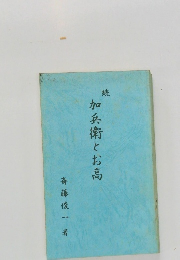 続
加兵衛とお高
斎藤俊一著